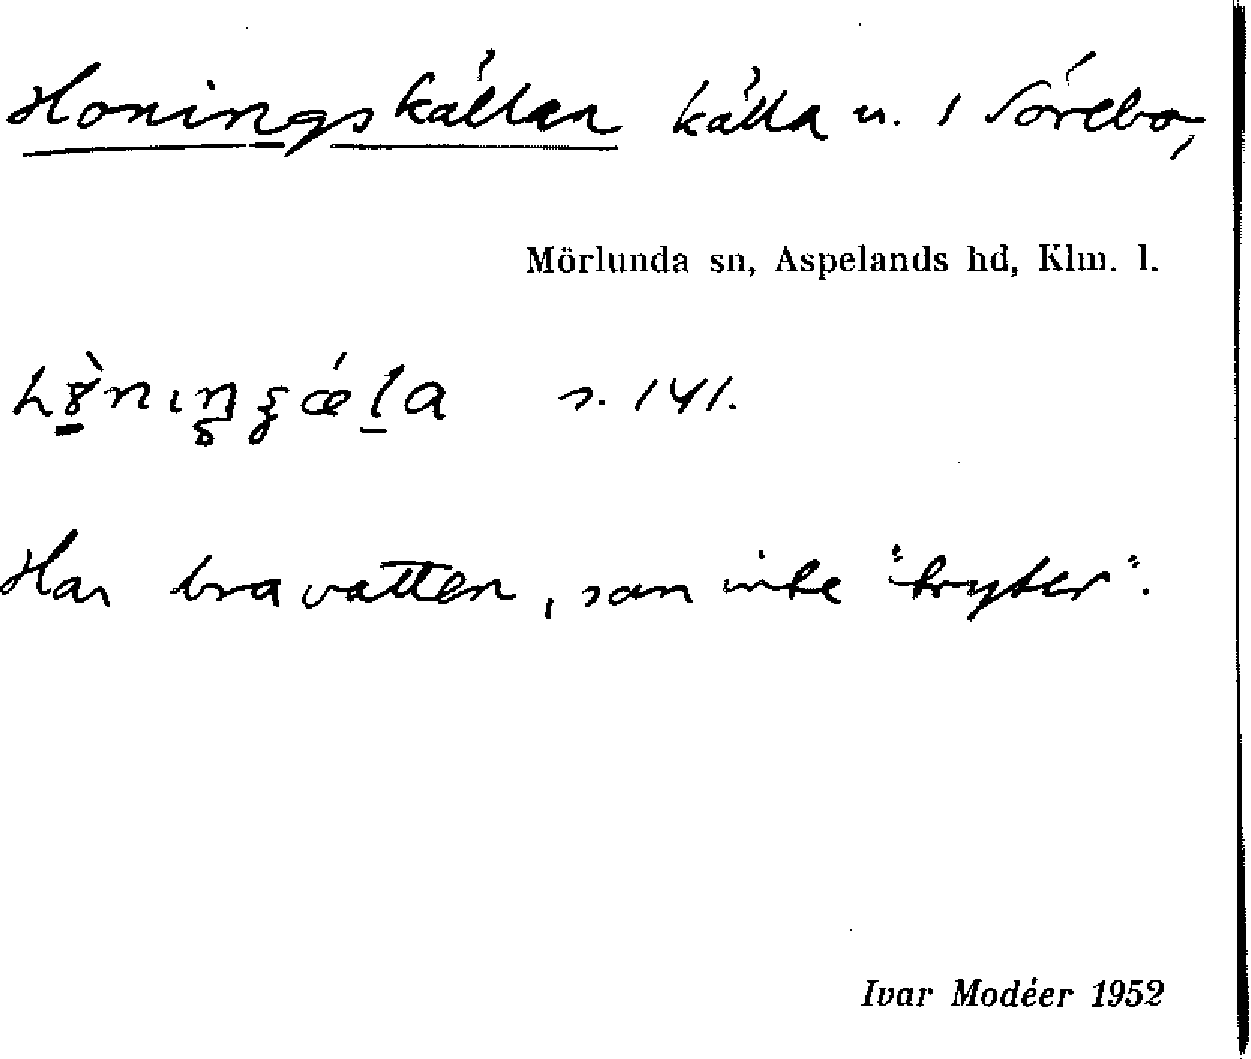 Honingskällan källa u. Sörebo,
Mörlunda sn, Aspelands hd, Klm. l.
s. 141.
Har bra vatten, som inte "tryter".
Ivar Modéer 1952